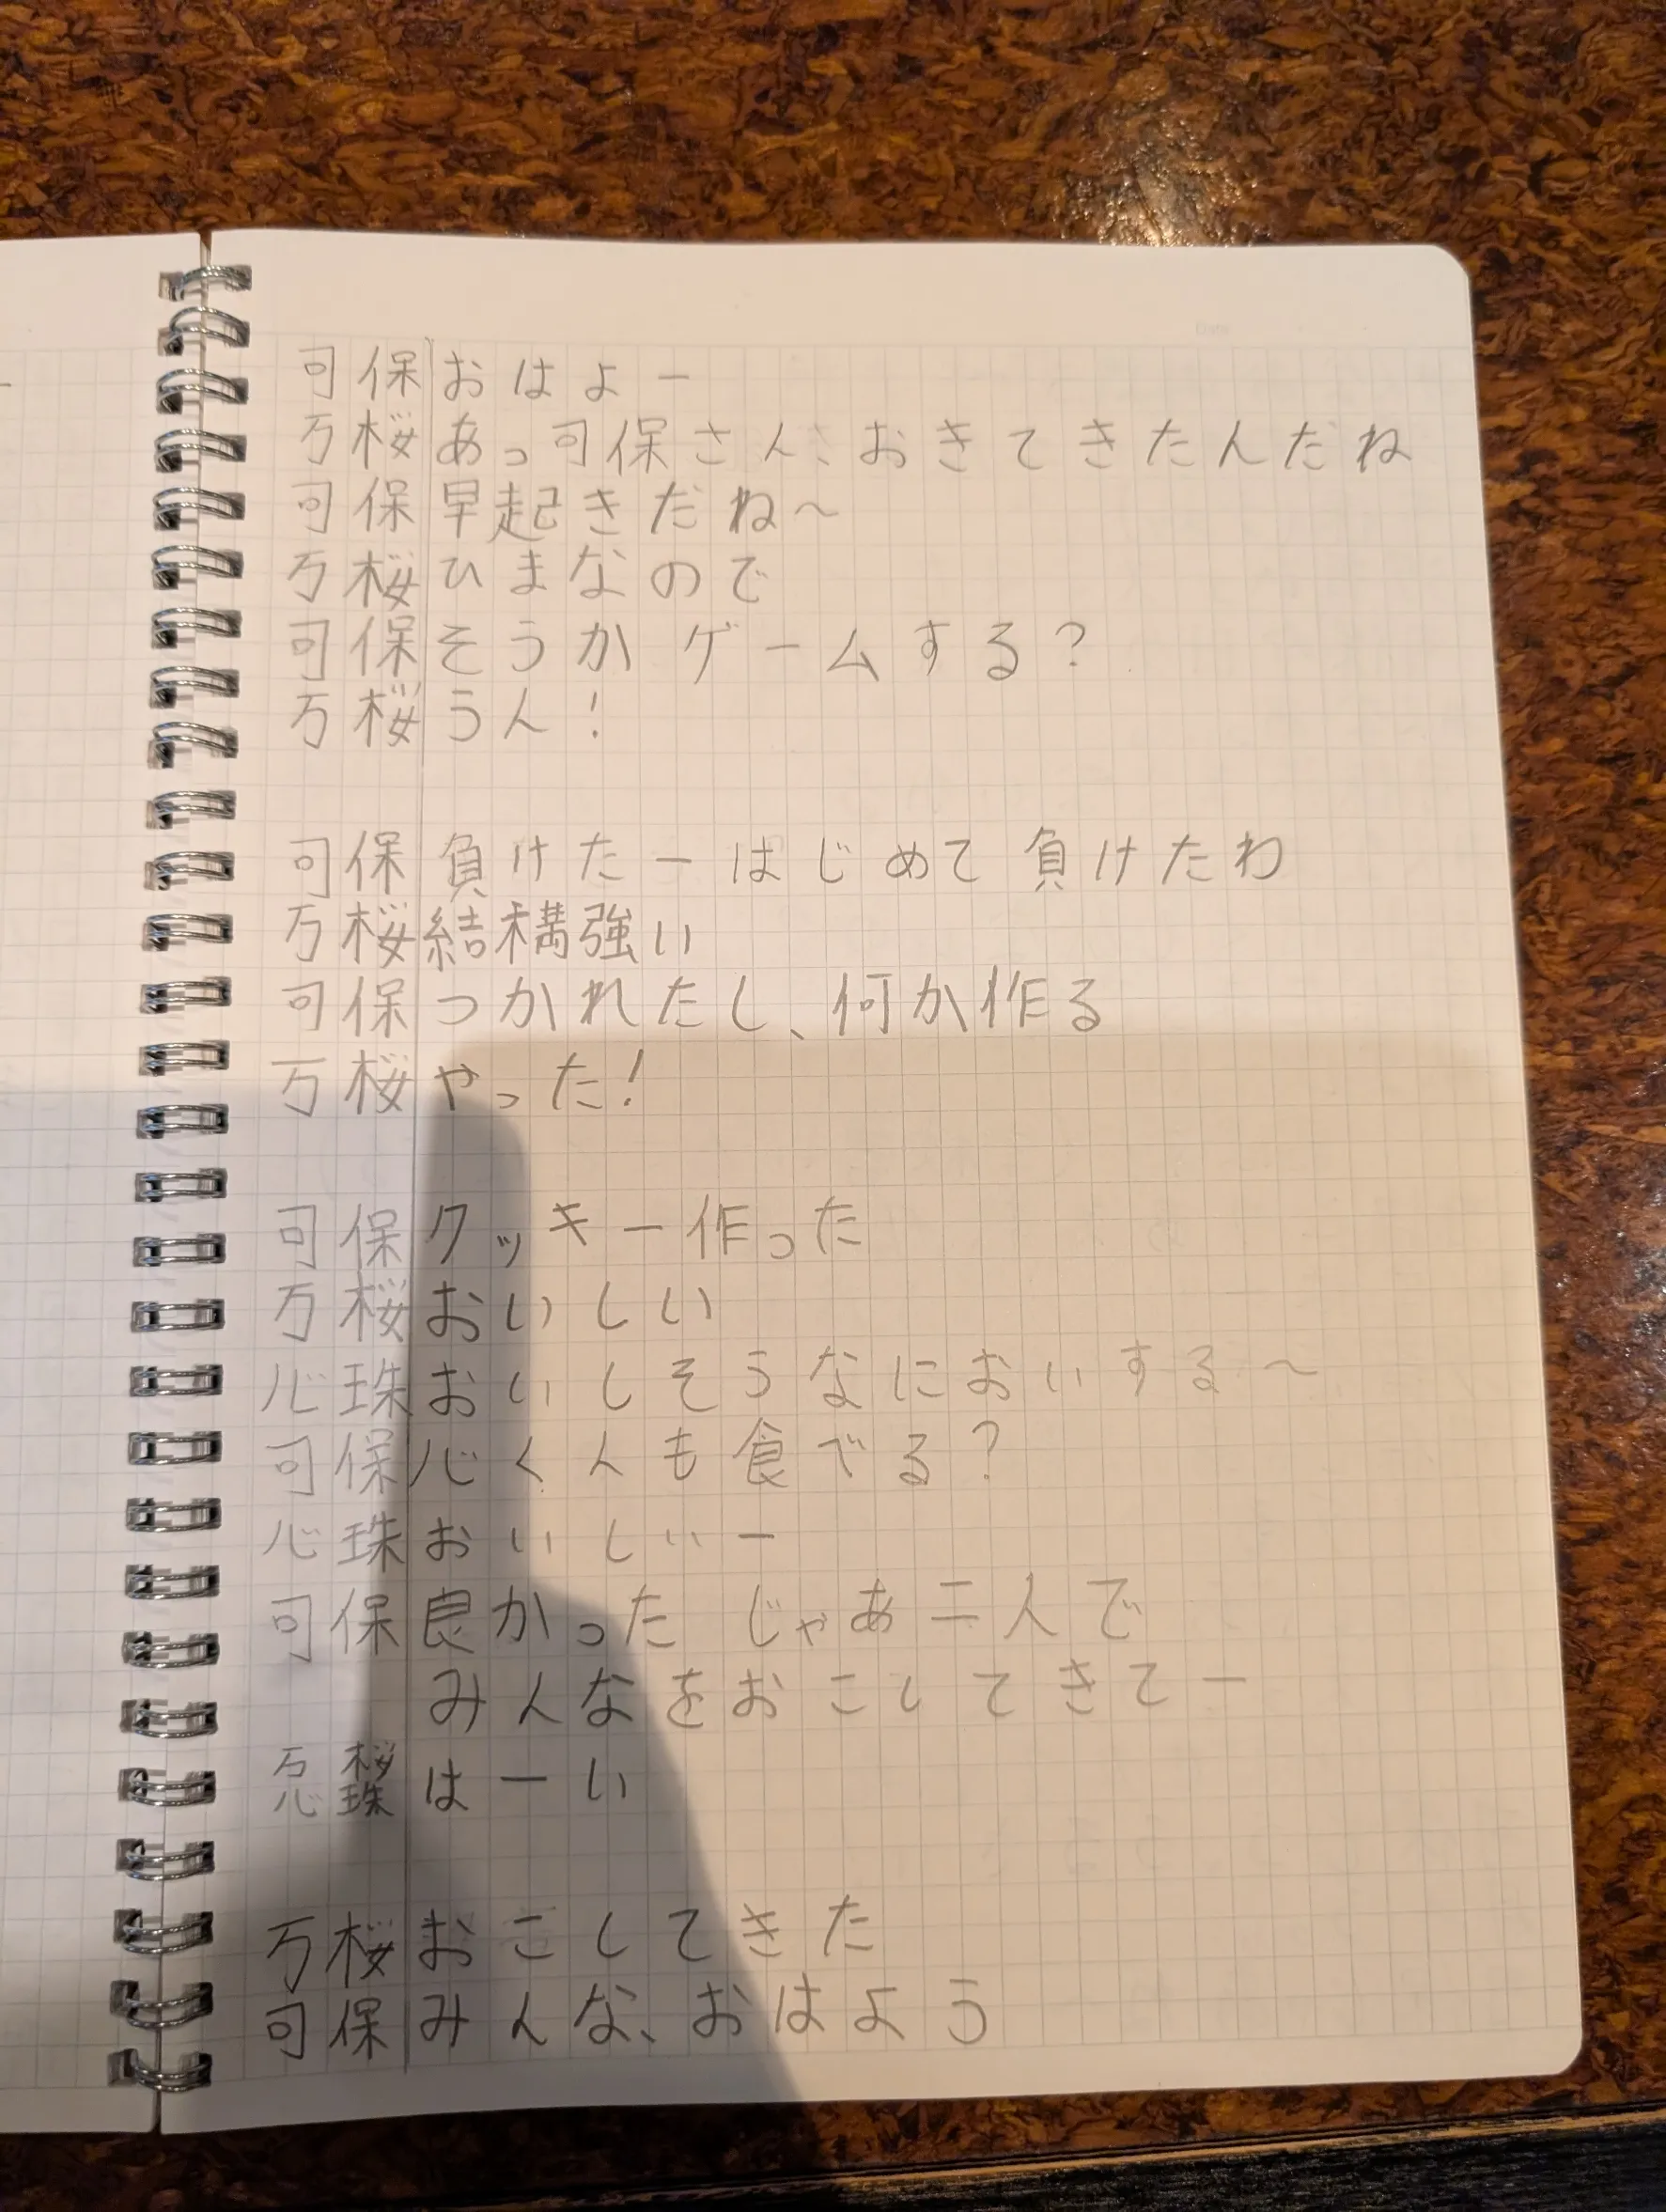 可保 おはよー
万桜 あっ可保さん、おきてきたんだね
可保 早起きだね～
万桜 ひまなので
可保 そうか ゲームする?
万桜 うん!
可保 負けたーはじめて負けたわ
万桜 結構強い
可保 つかれたし、何か作る
万桜 やった!
可保 クッキー作った
万桜 おいしい
心珠 おいしそうなにおいする～
可保 心くんも食べる?
心珠 おいしいー
可保 良かった じゃあ二人で
みんなをおこしてきてー
万桜
心珠 はーい
万桜 おこしてきた
可保 みんな、おはよう